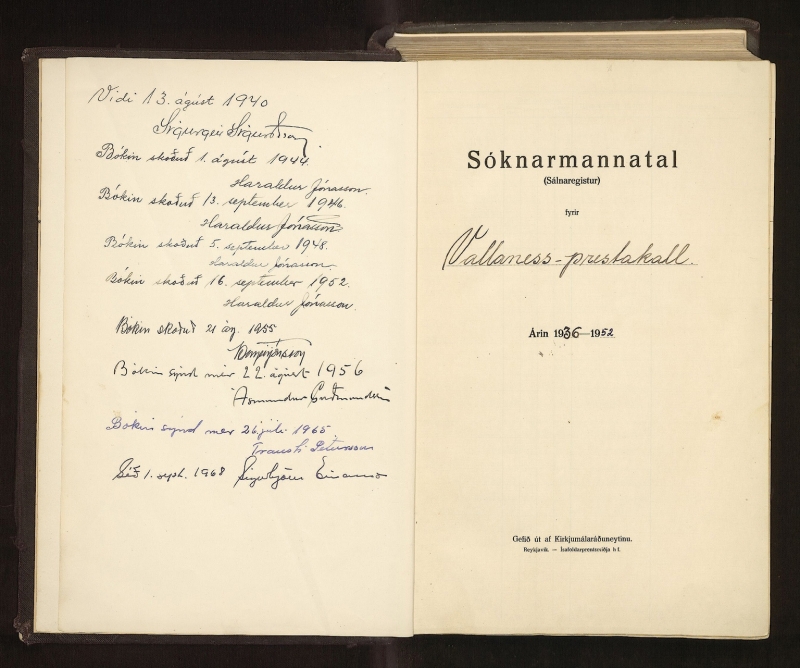 Vidi 13. ágúst 1940
Sigurgeir Sigurðsson
Bókin skoðuð 1. ágúst 1944
Haraldur Jónasson.
Bókin skoðuð 13. september 1946.
Haraldur Jónasson.
Bókin skoðuð 5. september 1948.
Haraldur Jónasson.
Bókin skoðuð 16. september 1952.
Haraldur Jónasson.
Bókin skoðuð 21 ág. 1955
Bókin sýnd mér 22. ágúst 1956
Ásmundur Guðmundsson
Bókin sýnd mér 26. júlí. 1965
Trausti Pétursson
Séð 1. sept. 1968 Sigurbjörn Einarsson
Sóknarmannatal
(Sálnaregistur)
fyrir
Vallaness-prestakall.
Árin 1936—1952
Gefið út af Kirkjumálaráðuneytinu.
Reykjavík. — Ísafoldarprentsmiðja h f.